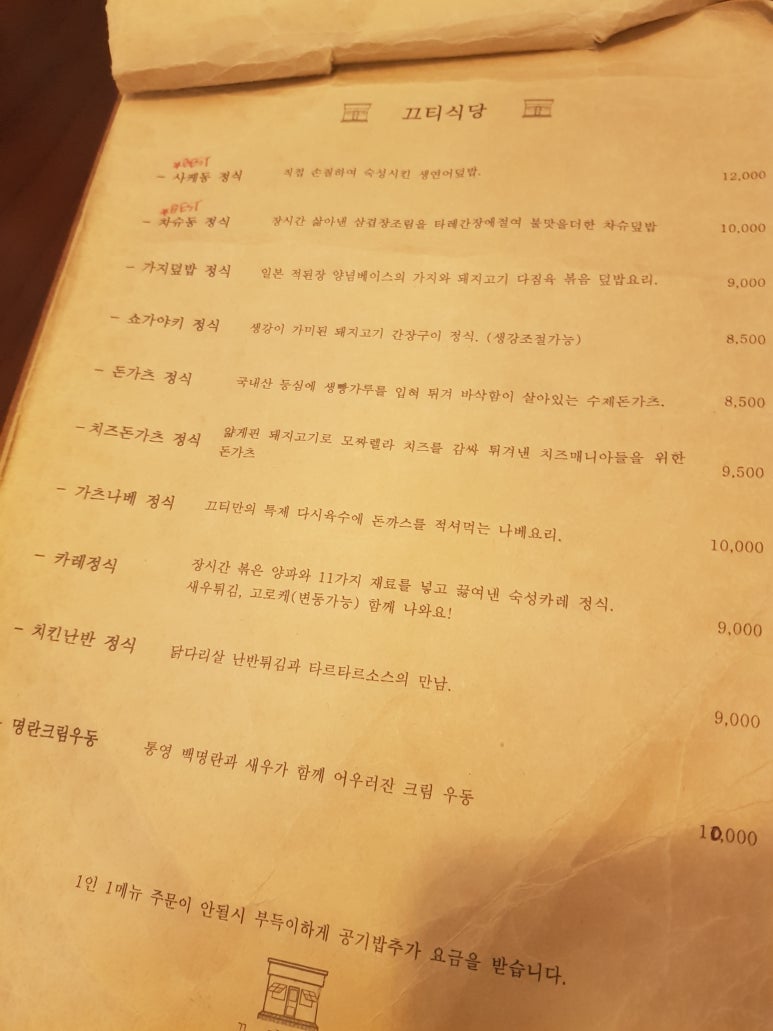 끄티식당
*BEST
- 사케동 정식 직접 손질하여 숙성시킨 생연어덮밥. 12,000
*BEST
- 차슈동 정식 장시간 삶아낸 삼겹장조림을 타레간장에절여 불맛을더한 차슈덮밥 10,000
- 가지덮밥 정식 일본 적된장 양념베이스의 가지와 돼지고기 다짐육 볶음 덮밥요리. 9,000
- 쇼가야키 정식 생강이 가미된 돼지고기 간장구이 정식. (생강조절가능) 8,500
- 돈가츠 정식 국내산 등심에 생빵가루를 입혀 튀겨 바삭함이 살아있는 수제돈가츠. 8,500
- 치즈돈가츠 정식 얇게핀 돼지고기로 모짜렐라 치즈를 감싸 튀겨낸 치즈매니아들을 위한
돈가츠 9,500
- 가츠나베 정식 끄티만의 특제 다시육수에 돈까스를 적셔먹는 나베요리. 10,000
- 카레정식 장시간 볶은 양파와 11가지 재료를 넣고 끓여낸 숙성카레 정식.
새우튀김, 고로케(변동가능) 함께 나와요! 9,000
- 치킨난반 정식 닭다리살 난반튀김과 타르타르소스의 만남. 9,000
- 명란크림우동 통영 백명란과 새우가 함께 어우러잔 크림 우동 10,000
1인 1메뉴 주문이 안될시 부득이하게 공기밥추가 요금을 받습니다.